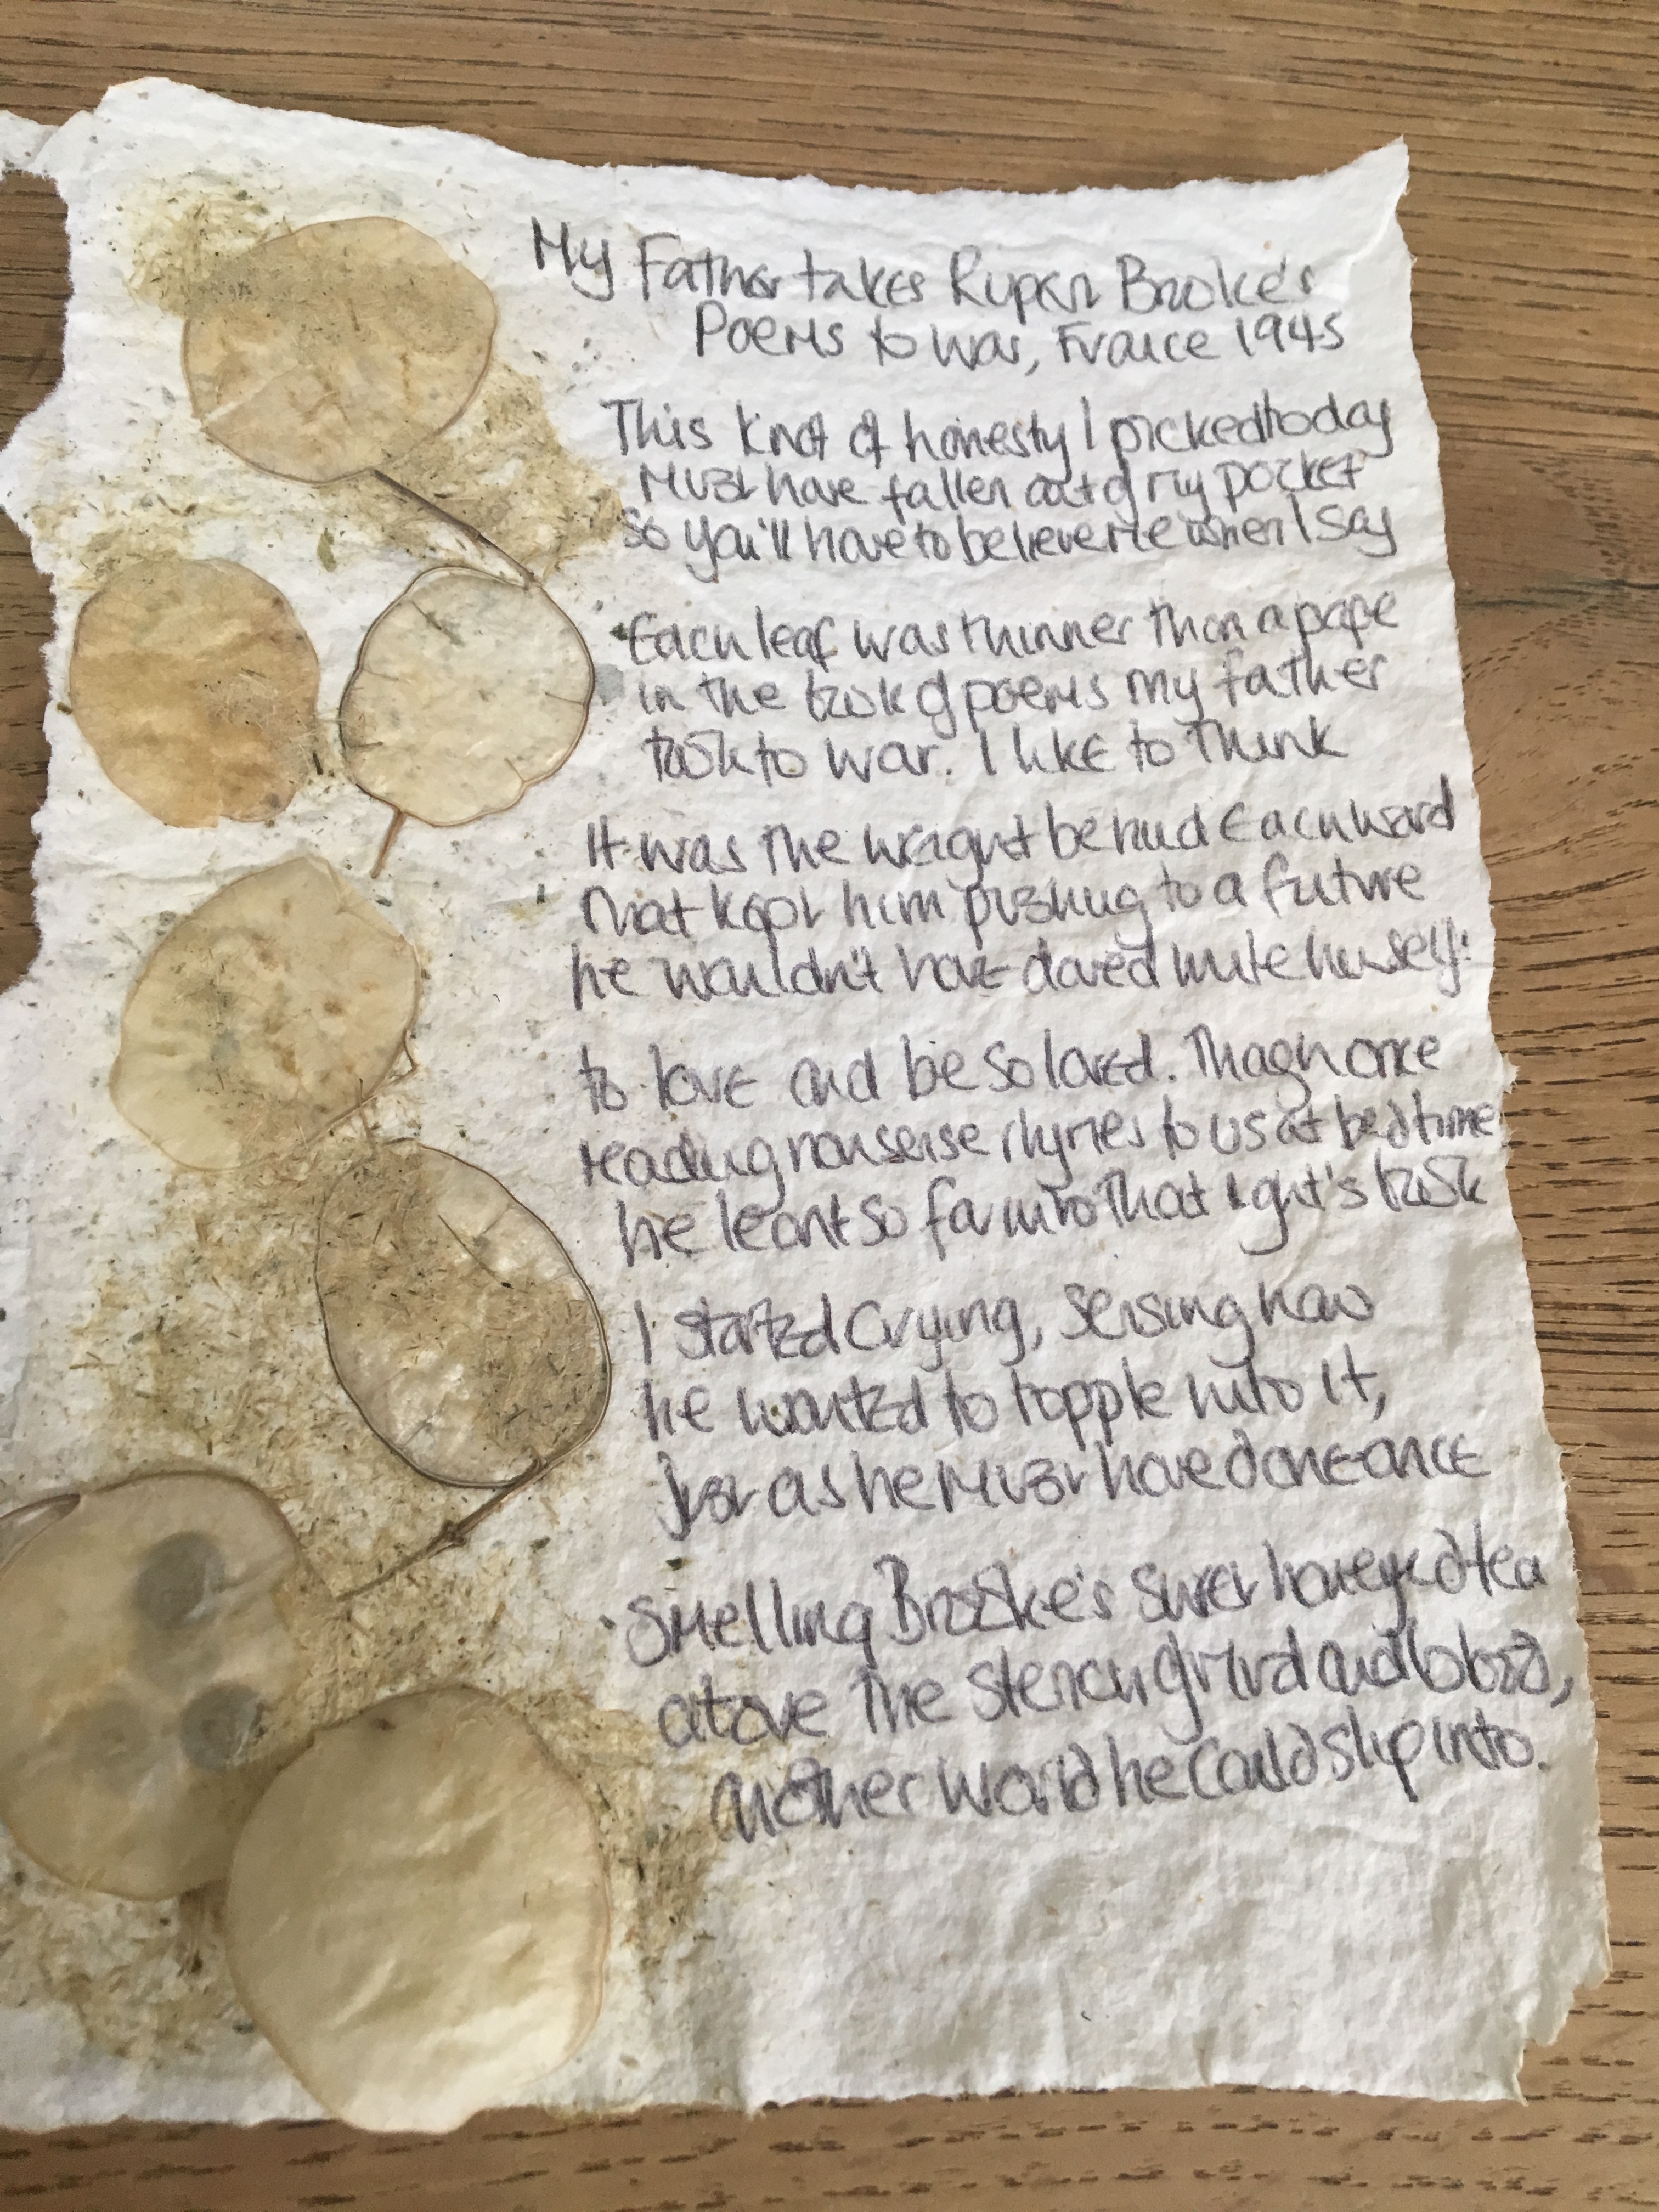 My Father takes Rupert Brooke's
Poems to War, France 1945
This knot of honesty I picked today
must have fallen out of my pocket
so you'll have to believe me when I say
Each leaf was thinner than a page
in the book of poems my father
took to war. I like to think
It was the weight behind each word
that kept him pushing to a future
he wouldn't have dared write himself:
to love and be so loved. Though once
reading nonsense rhymes to us at bedtime
he leant so far into that light's book
I started crying, sensing how
he wanted to topple into it,
just as he must have done once
smelling Brooke's sweet honeyed tea
above the stench of mud and blood,
another world he could slip into.